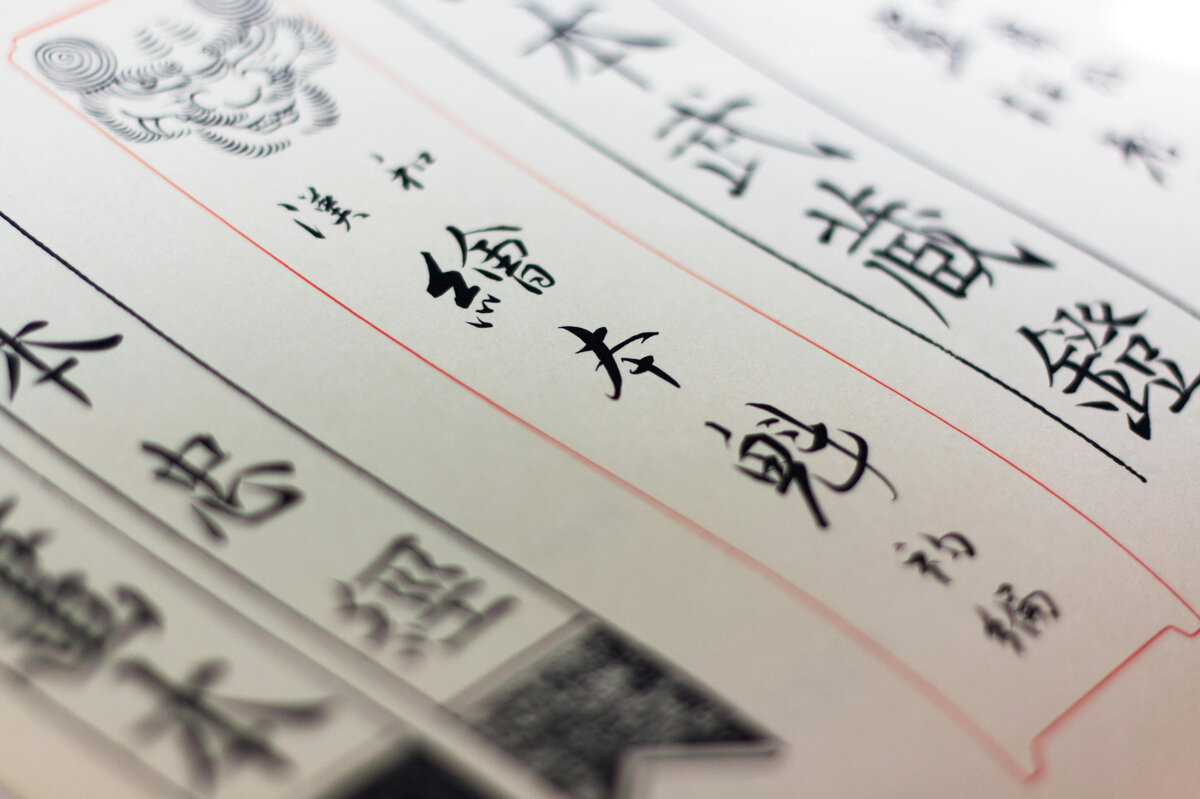 本武蔵鐙
和漢
繪本魁
初編
本忠經
本